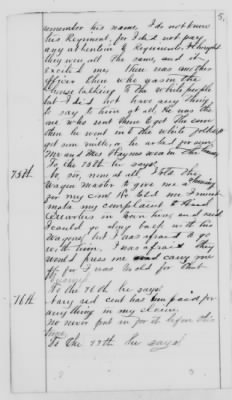 5.
remember his name. I do not know
his Regiment, for I did not pay
any attention to Regiments. I thought
they were all the same, and it
excited me. There was an this
officer then who was in the
house talking to the white people
but I did not have any thing
to say to him at all. He was the
one who sent them to get the corn
then he went into the white folks to
get some
Mr and Mrs Haynes was in the house
To the 75th he says:
75th. No, sir, none at all. I told the
wagon master to give me a
for my corn. He told me I must
make my complaint to Head
Quarters in town, and said
I could go along back with his
wagons, but I was afraid to go
with him. I was afraid they
would press me and carry me
off, for I was told for that
To the 76th he says:
76th. Nary red cent has been paid for
anything in my claim.
no never put in for it before this
time.
To the 77th he says: